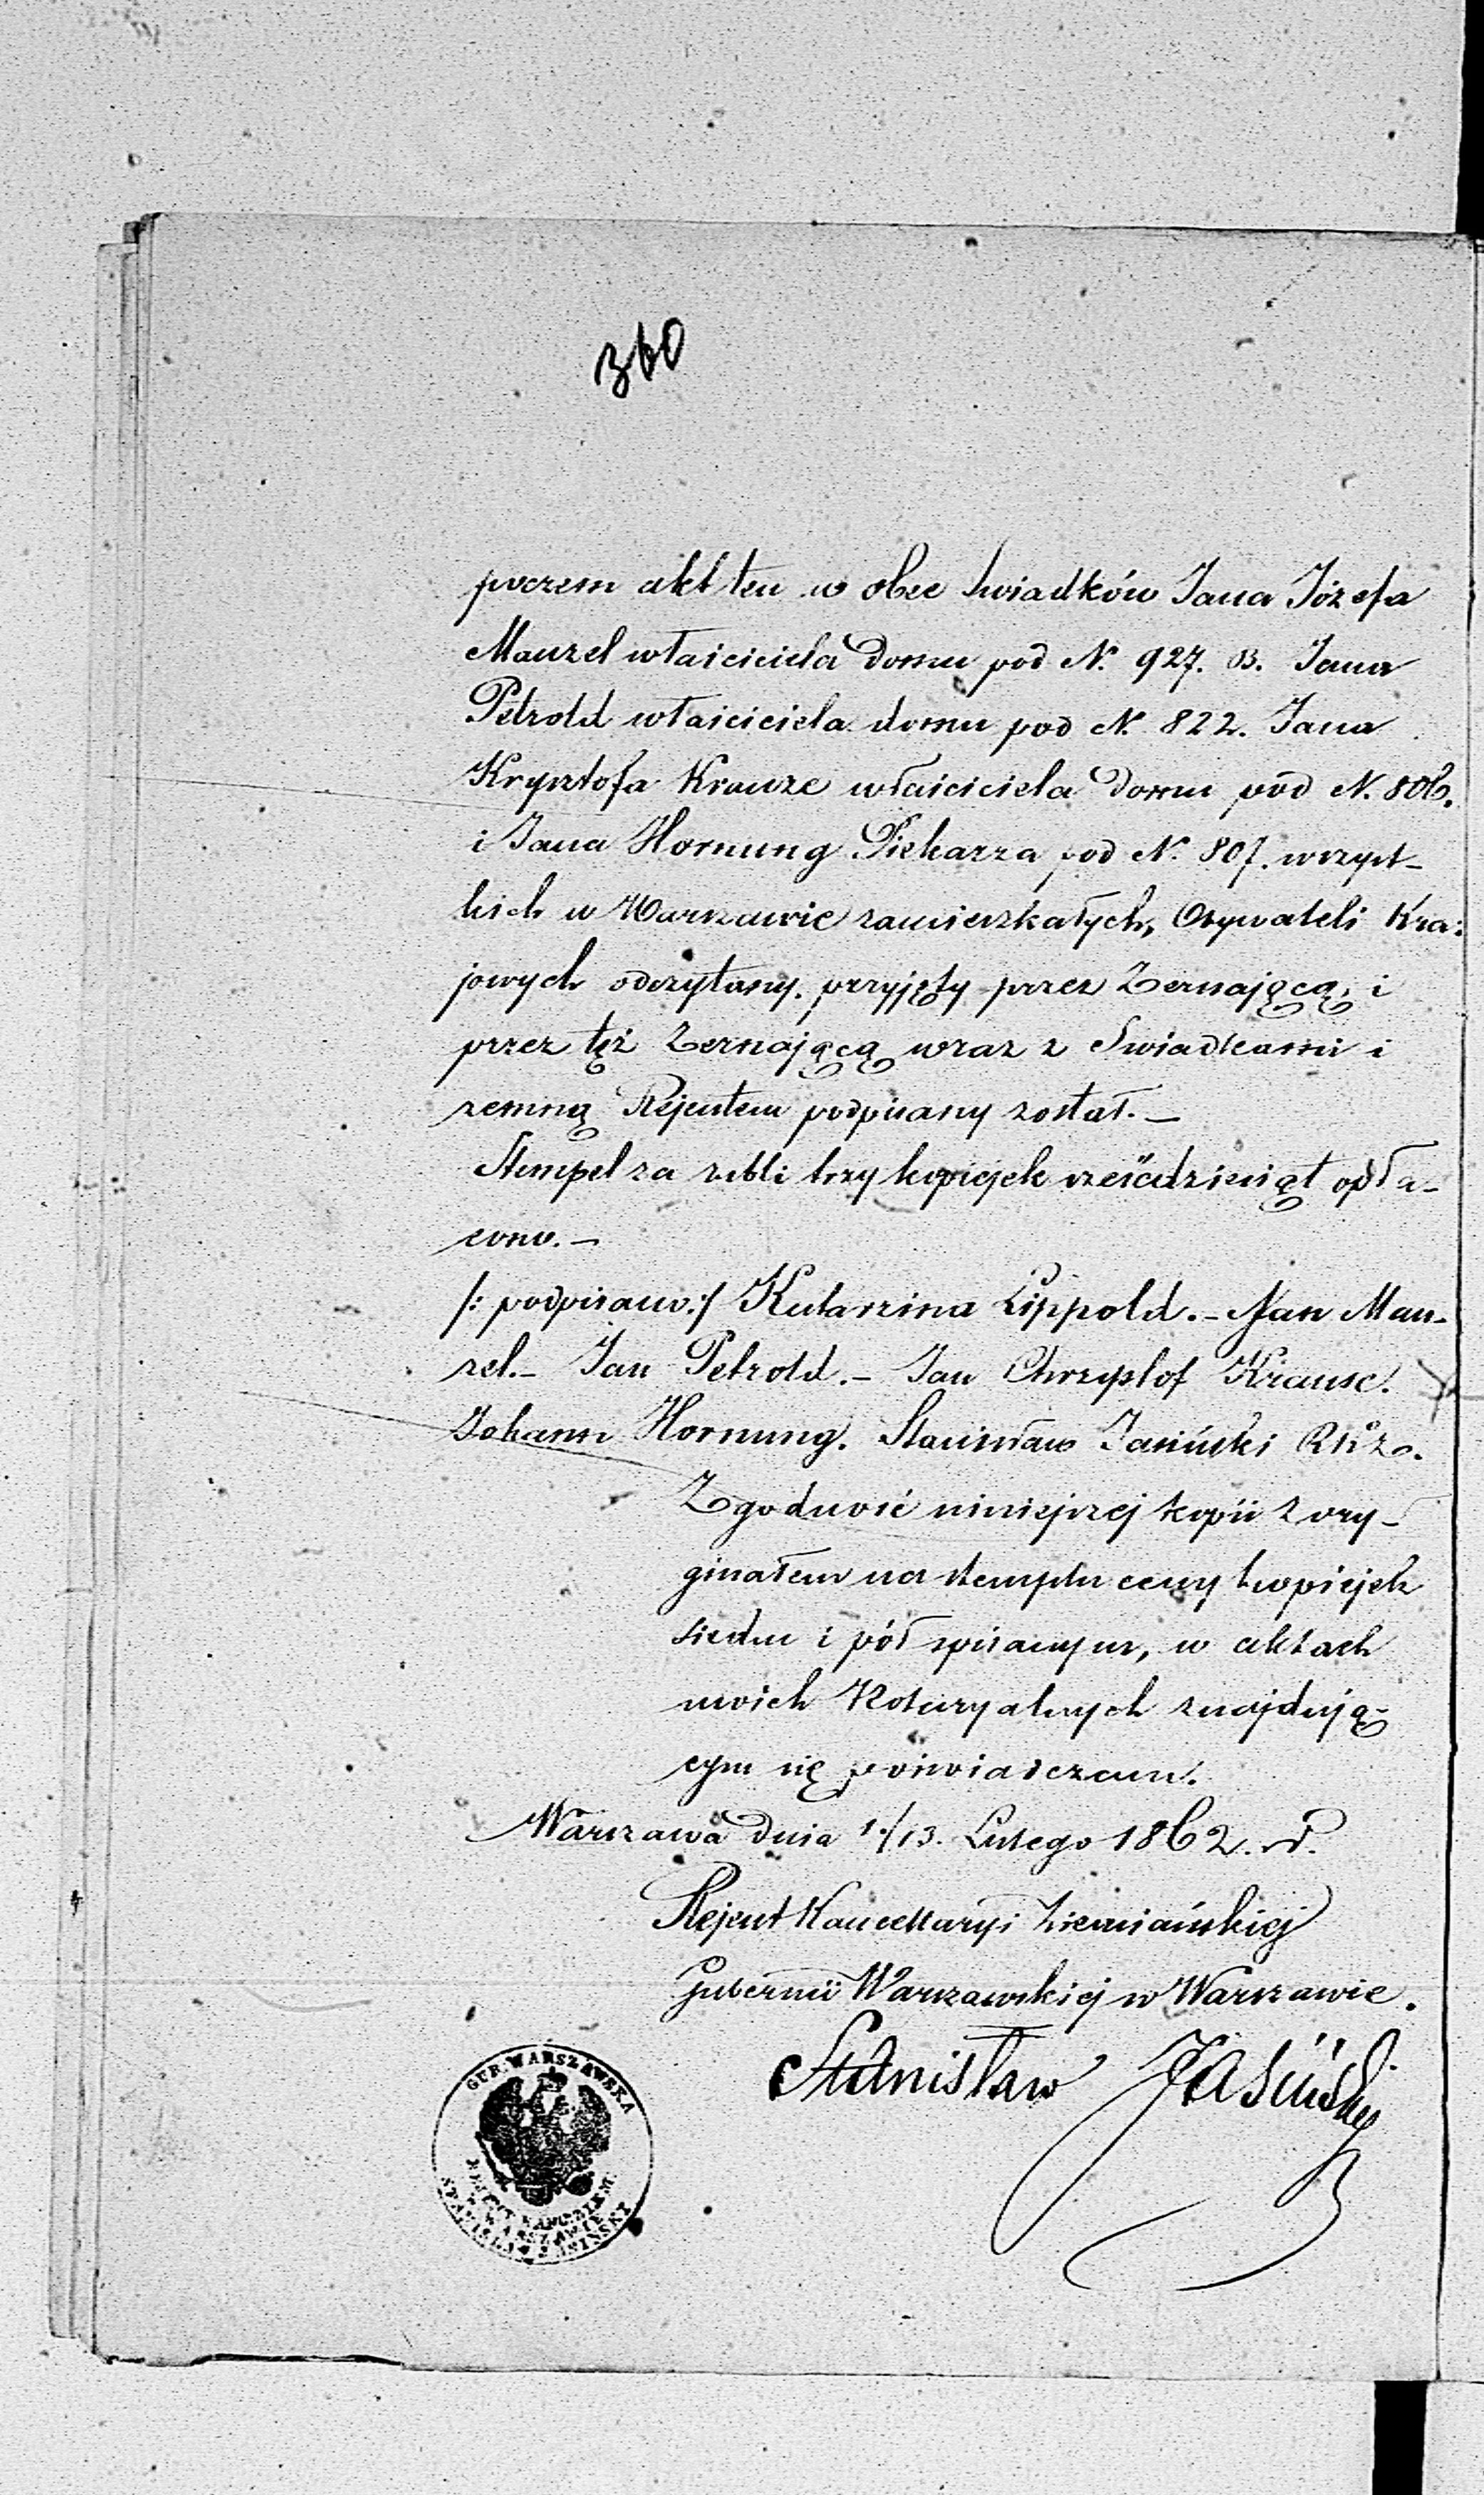 360
poczem akt ten w obec świadków Jana Józefa
Manzel właściciela domu pod N. 927. B. Jana
Petzold właściciela domu pod N. 822. Jana
Krysztofa Krauze właściciela domu pod N. 806.
i Jana Hornung Piekarza pod N. 807. wszyst-
kich w Warszawie zamieszkałych, Obywateli Kra-
jowych odczytany, przyjęty przez Zeznającą, i
przez tęż Zeznającą wraz z Świadkami i
zemną Rejentem podpisany został. —
Stempel za rubli trzy kopiejek sześćdziesiąt opła-
cono. —
/: podpisano :/ Katarzina Lippold. — Jan Man-
zel. — Jan Petzold. — Jan Chrzystof Krause.
Johann Hornung. Stanisław Jasiński R.K.Z.
Zgodność niniejszej kopii z ory-
ginałem na stemplu ceny kopiejek
siedm i pół spisanym, w aktach
moich Notaryalnych znajdują-
cym się poświadczam.
Warszawa dnia 1./13. Lutego 1862. r.
Rejent Kancellaryi Ziemiańskiej
Gubernii Warszawskiej w Warszawie.
Stanisław Jasiński
GUB. WARSZAWSKA
REJENT KANC. ZIEM.
W WARSZAWIE
STANISŁAW JASIŃSKI